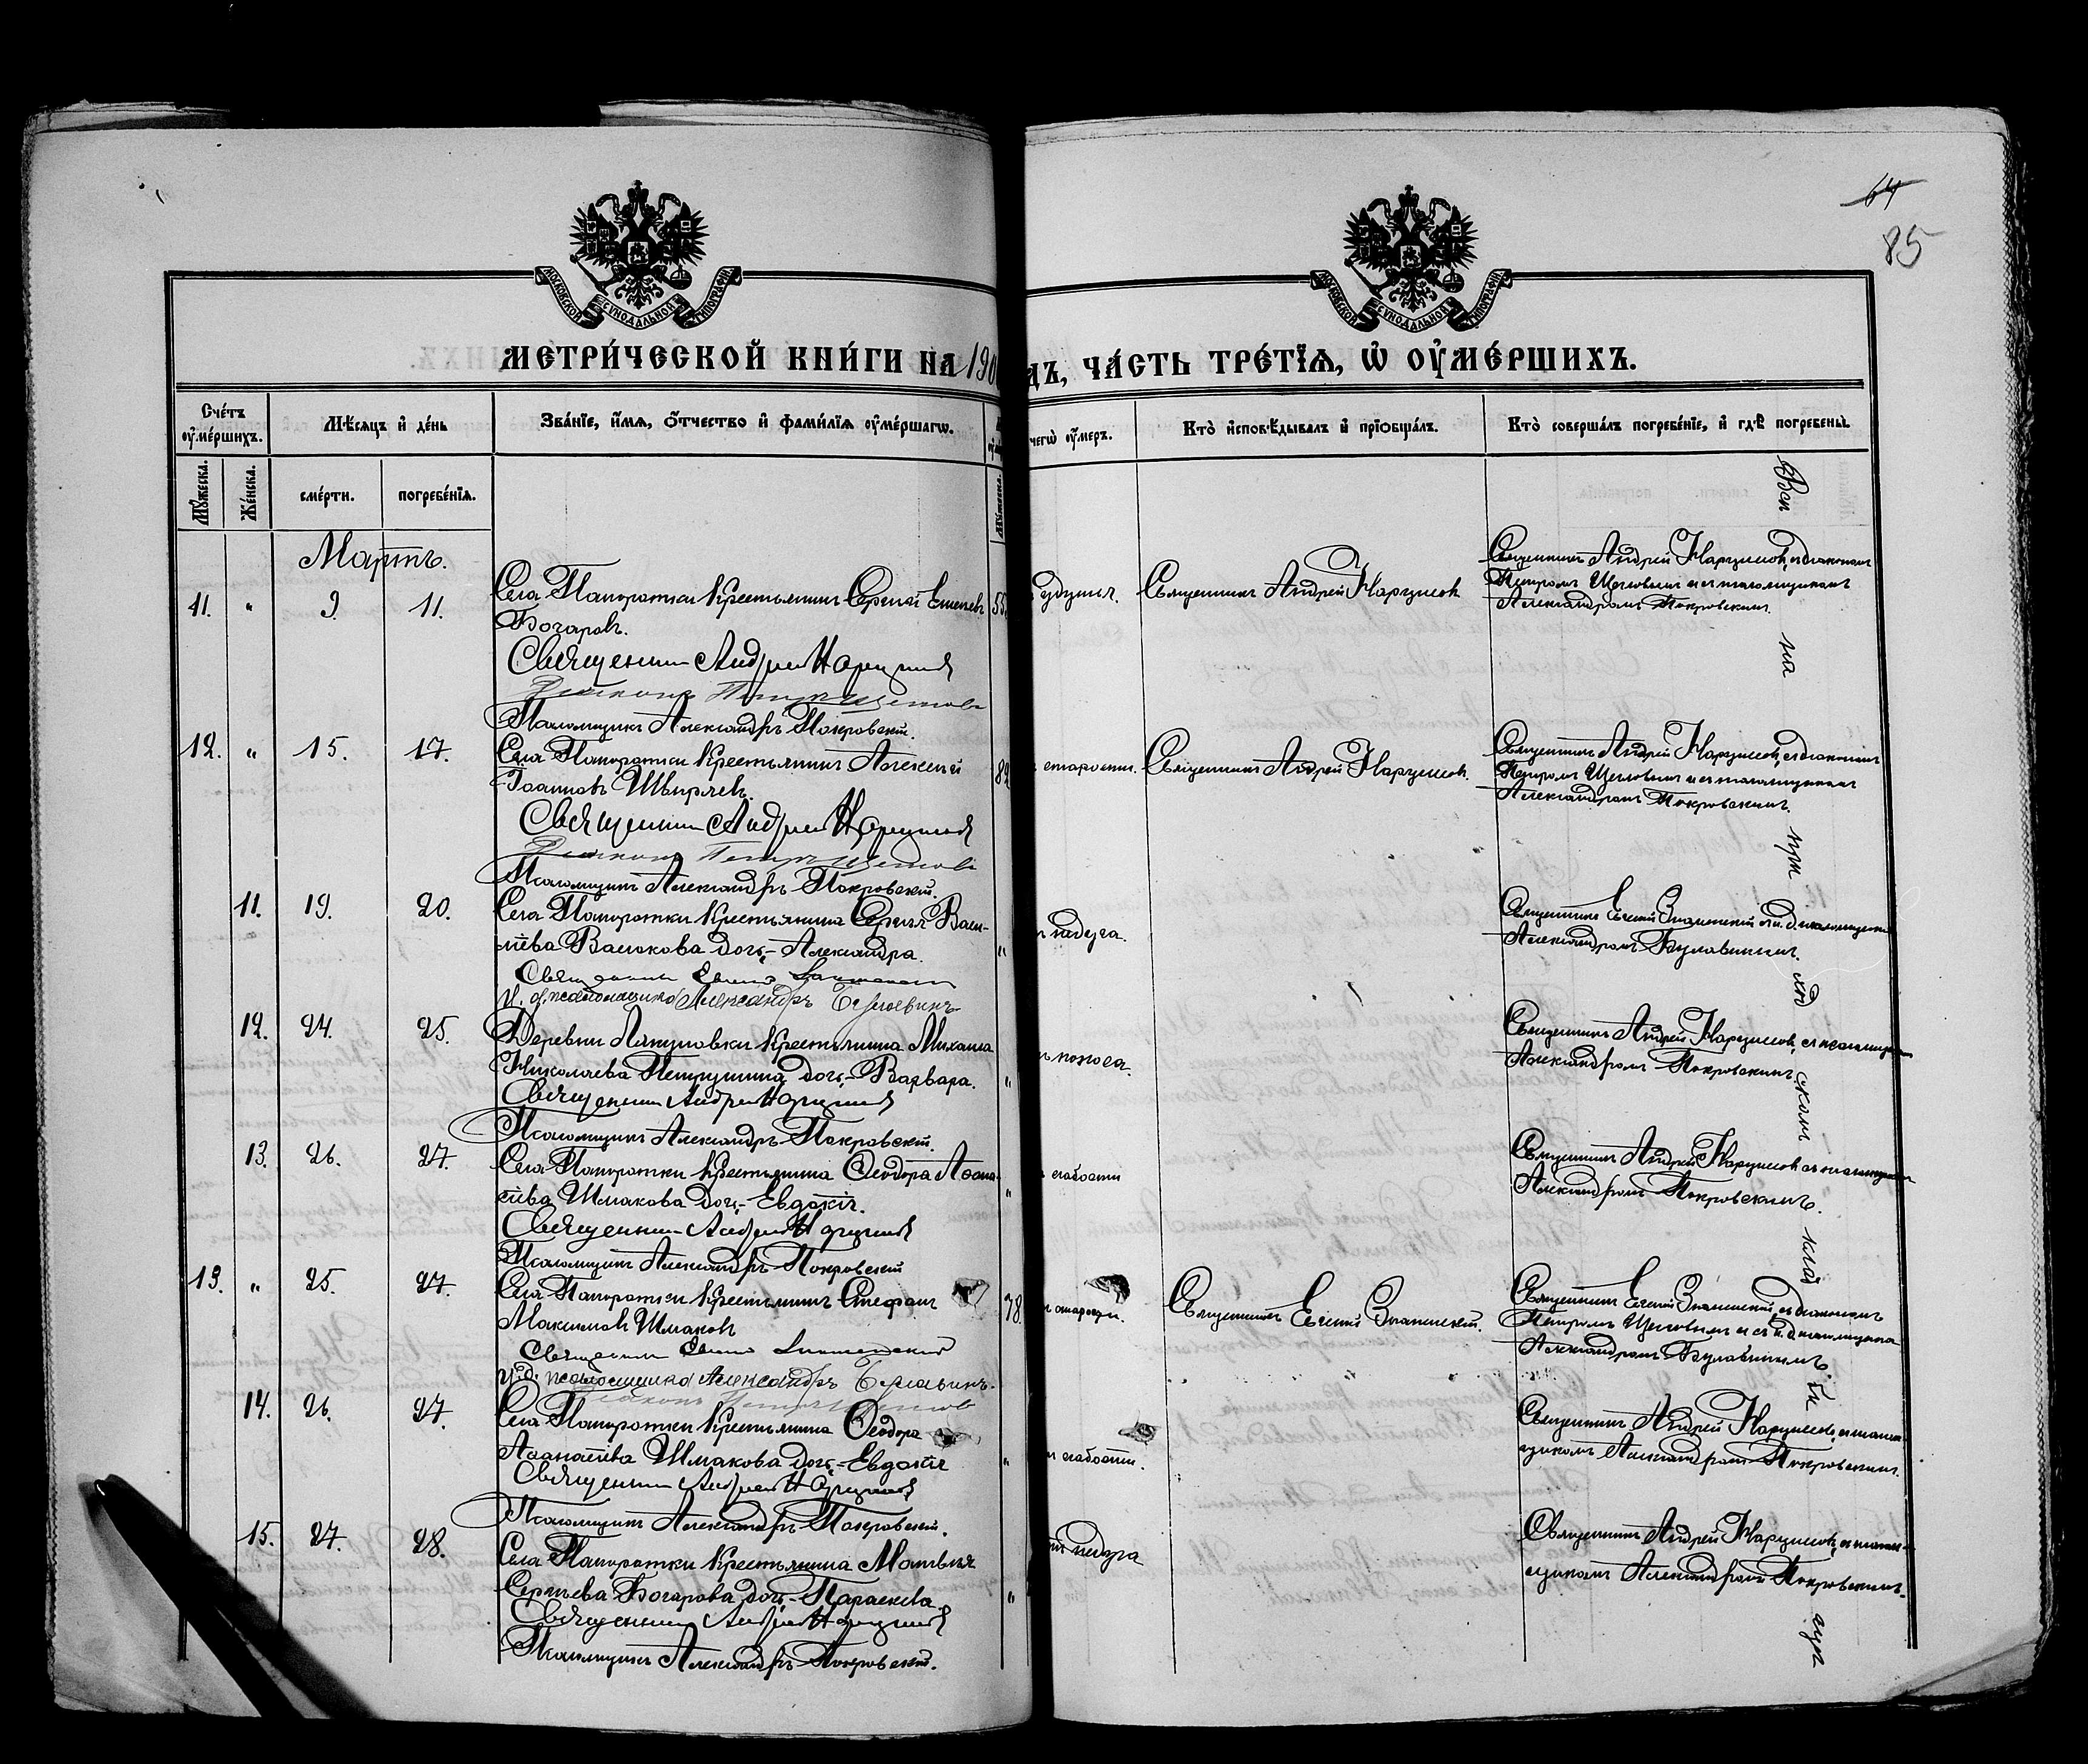 64
85
МОСКОВСКОЙ СУНОДАЛЬНОЙ ТИПОГРАФІИ
МОСКОВСКОЙ СУНОДАЛЬНОЙ ТИПОГРАФІИ
МЕТРИ́ЧЕСКОЙ КНИ́ГИ НА 190
ДЪ, ЧА́СТЬ ТРЕ́ТЇѦ, Ѡ҆ ОУ҆МЕ́РШИХЪ.
Сче́тъ оу҆ме́ршихъ.
Мѣ́сѧцъ и҆ де́нь
Зва́нїе, и҆́мѧ, ѻ҆́тчество и҆ фами́лїѧ оу҆ме́ршагѡ.
чегѡ̀ оу҆́меръ.
Кто̀ и҆сповѣ́дывалъ и҆ прїѡбща́лъ.
Кто̀ соверша́лъ погребе́нїе, и҆ гдѣ̀ погребены̀.
Мꙋ́жеска.
Же́нска.
сме́рти.
погребе́нїѧ.
Мартъ.
11. " 9. 11.
Села Папоротки крестьянинъ Сергий
Бочаровъ.
Священникъ Андрей Нарциссовъ
Псаломщикъ Александръ Покровскій.
Священникъ Андрей Нарциссовъ
Священникъ Андрей Нарциссовъ, съ діакономъ
Петромъ Щегловымъ и съ псаломщикомъ
Александромъ Покровскимъ.
12. " 15. 17.
Села Папоротки крестьянинъ Алексій
Іоанновъ Швыряевъ.
Священникъ Андрей Нарциссовъ
Псаломщикъ Александръ Покровскій.
старости.
Священникъ Андрей Нарциссовъ.
Священникъ Андрей Нарциссовъ, съ діакономъ
Петромъ Щегловымъ и съ псаломщикомъ
Александромъ Покровскимъ.
11. 19. 20.
Села Папоротки крестьянина Сергія Васи-
ліева Васюкова дочь - Александра.
и. д. псаломщика Александръ
недуга.
Священникъ Евгеній Знаменскій
Александромъ
12. 24. 25.
Деревни Ляпуновки крестьянина Михаила
Николаева Петрушина дочь - Варвара.
Священникъ Андрей Нарциссовъ
Псаломщикъ Александръ Покровскій.
поноса.
Священникъ Андрей Нарциссовъ, съ псаломщикомъ
Александромъ Покровскимъ.
13. 26. 27.
Села Папоротки крестьянина Ѳеодора Аѳана-
сіева Шмакова дочь - Евдокія.
Священникъ Андрей Нарциссовъ
Псаломщикъ Александръ Покровскій
слабости
Священникъ Андрей Нарциссовъ съ псаломщикомъ
Александромъ Покровскимъ.
13. " 25. 27.
Села Папоротки крестьянинъ Стефанъ
Максимовъ Шмаковъ
78.
и. д. псаломщика Александръ
старости.
Священникъ Евгеній Знаменскій.
Священникъ Евгеній Знаменскій, съ діакономъ
Петромъ Щегловымъ и съ и. д. псаломщика
Александромъ
14. 26. 27.
Села Папоротки крестьянина Ѳеодора
Аѳанасіева Шмакова дочь - Евдокія
Священникъ Андрей Нарциссовъ
Псаломщикъ Александръ Покровскій.
слабости.
Священникъ Андрей Нарциссовъ, съ псалом-
щикомъ Александромъ Покровскимъ.
15. 27. 28.
Села Папоротки крестьянина Матвѣя
Сергѣева Бочарова дочь - Параскева.
Священникъ Андрей Нарциссовъ
Псаломщикъ Александръ Покровскій.
недуга
Священникъ Андрей Нарциссовъ, съ псалом-
щикомъ Александромъ Покровскимъ.
на
при
ход
ском